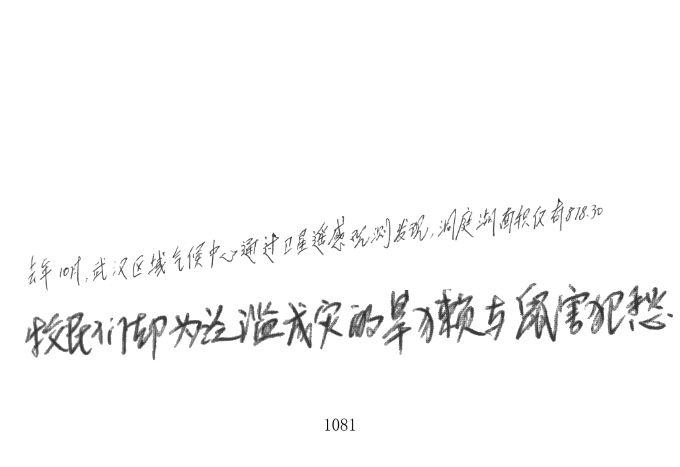 去年10月，武汉区域气候中心通过卫星遥感观测发现，洞庭湖面积仅有878.30
牧民们却为泛滥成灾的旱獭与鼠害犯愁
1081